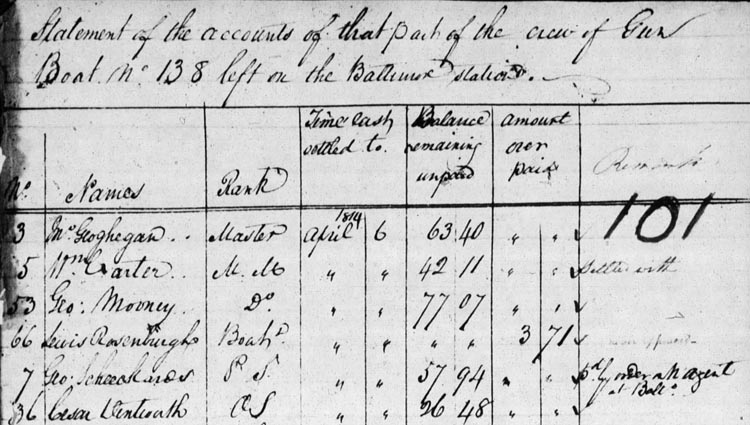 Statement of the accounts of that part of the crew of Gun
Boat No 138 left on the Baltimore station.
No Names Rank Time last settled to. Balance remaining unpaid amount over paid Remarks
101
3 Geoghegan Master April 1814 6 63 40 " "
5 Wm Carter M. M " " 42 11 " " Settled with
53 Geo: Mooney Do " " 77 07 " "
66 Lewis Rosenburgh Boatn " " " " 3 71
7 Geo: P S " " 57 94 " " pd by order Agent
at Balto
36 Cesar Wentworth OS " " 26 48 " "